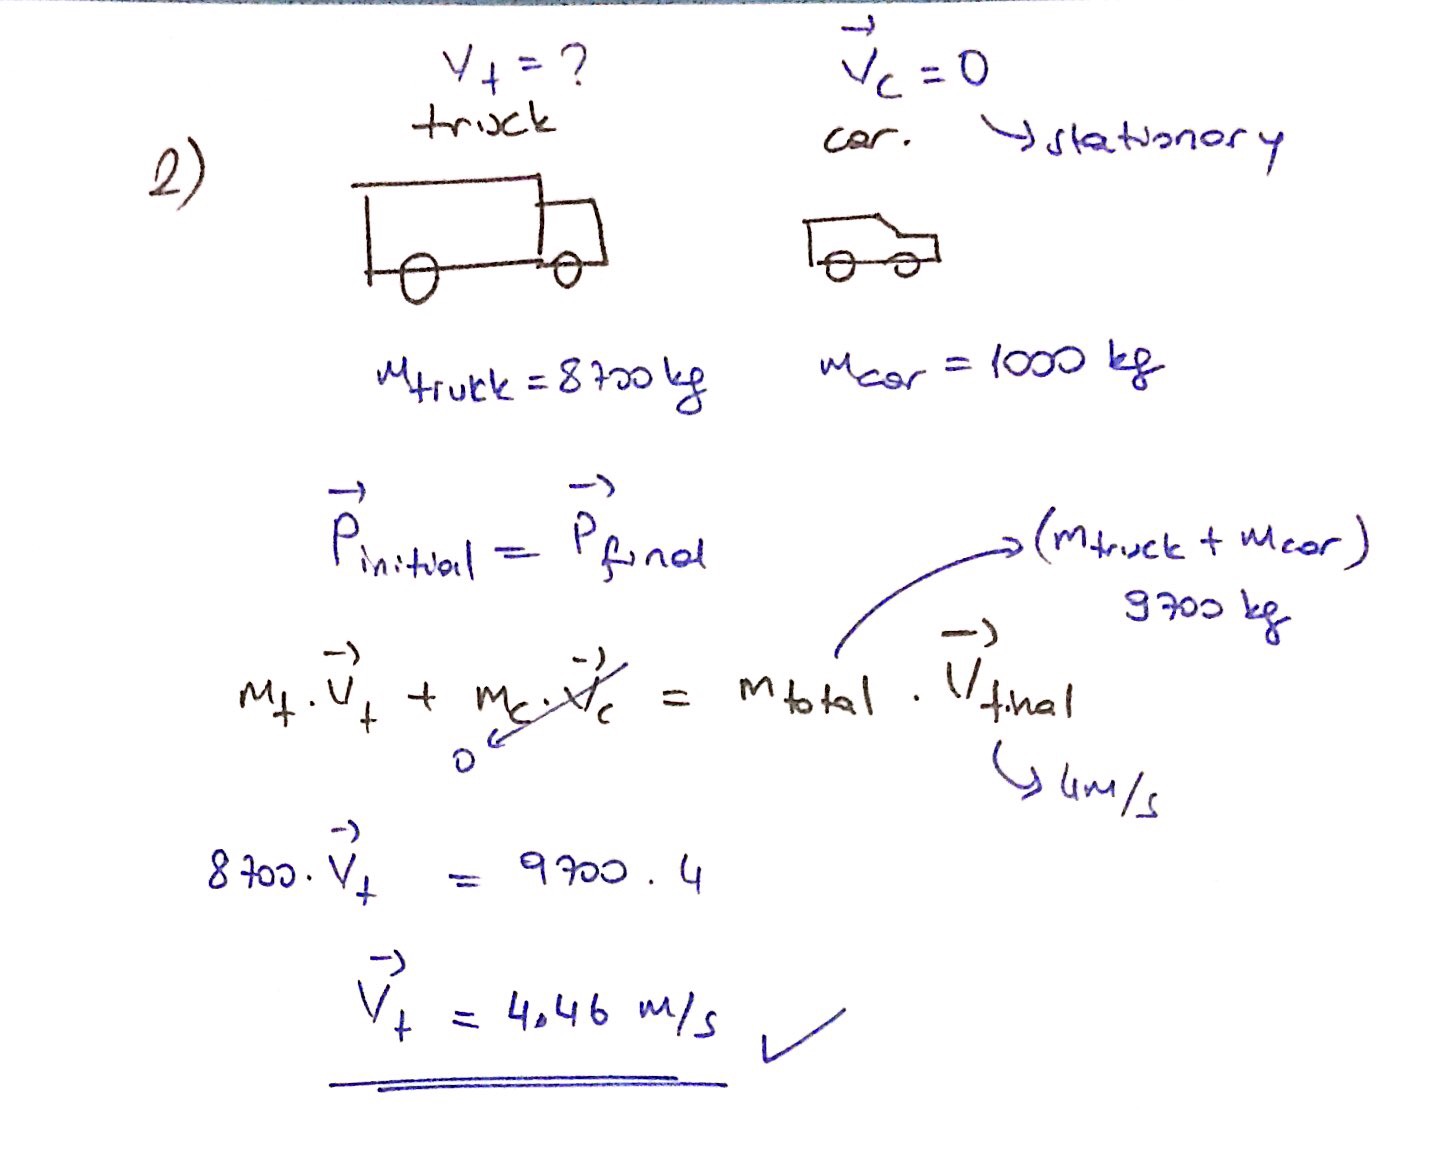 V_t = ?
V⃗_c = 0
truck
car.
→ stationary
2)
m_truck = 8700 kg
m_car = 1000 kg
P⃗_initial = P⃗_final
→ (m_truck + m_car)
9700 kg
m_t . V⃗_t + m_c . V⃗_c = m_total . V⃗_final
0
→ 4 m/s
8700 . V⃗_t = 9700 . 4
V⃗_t = 4.46 m/s ✓